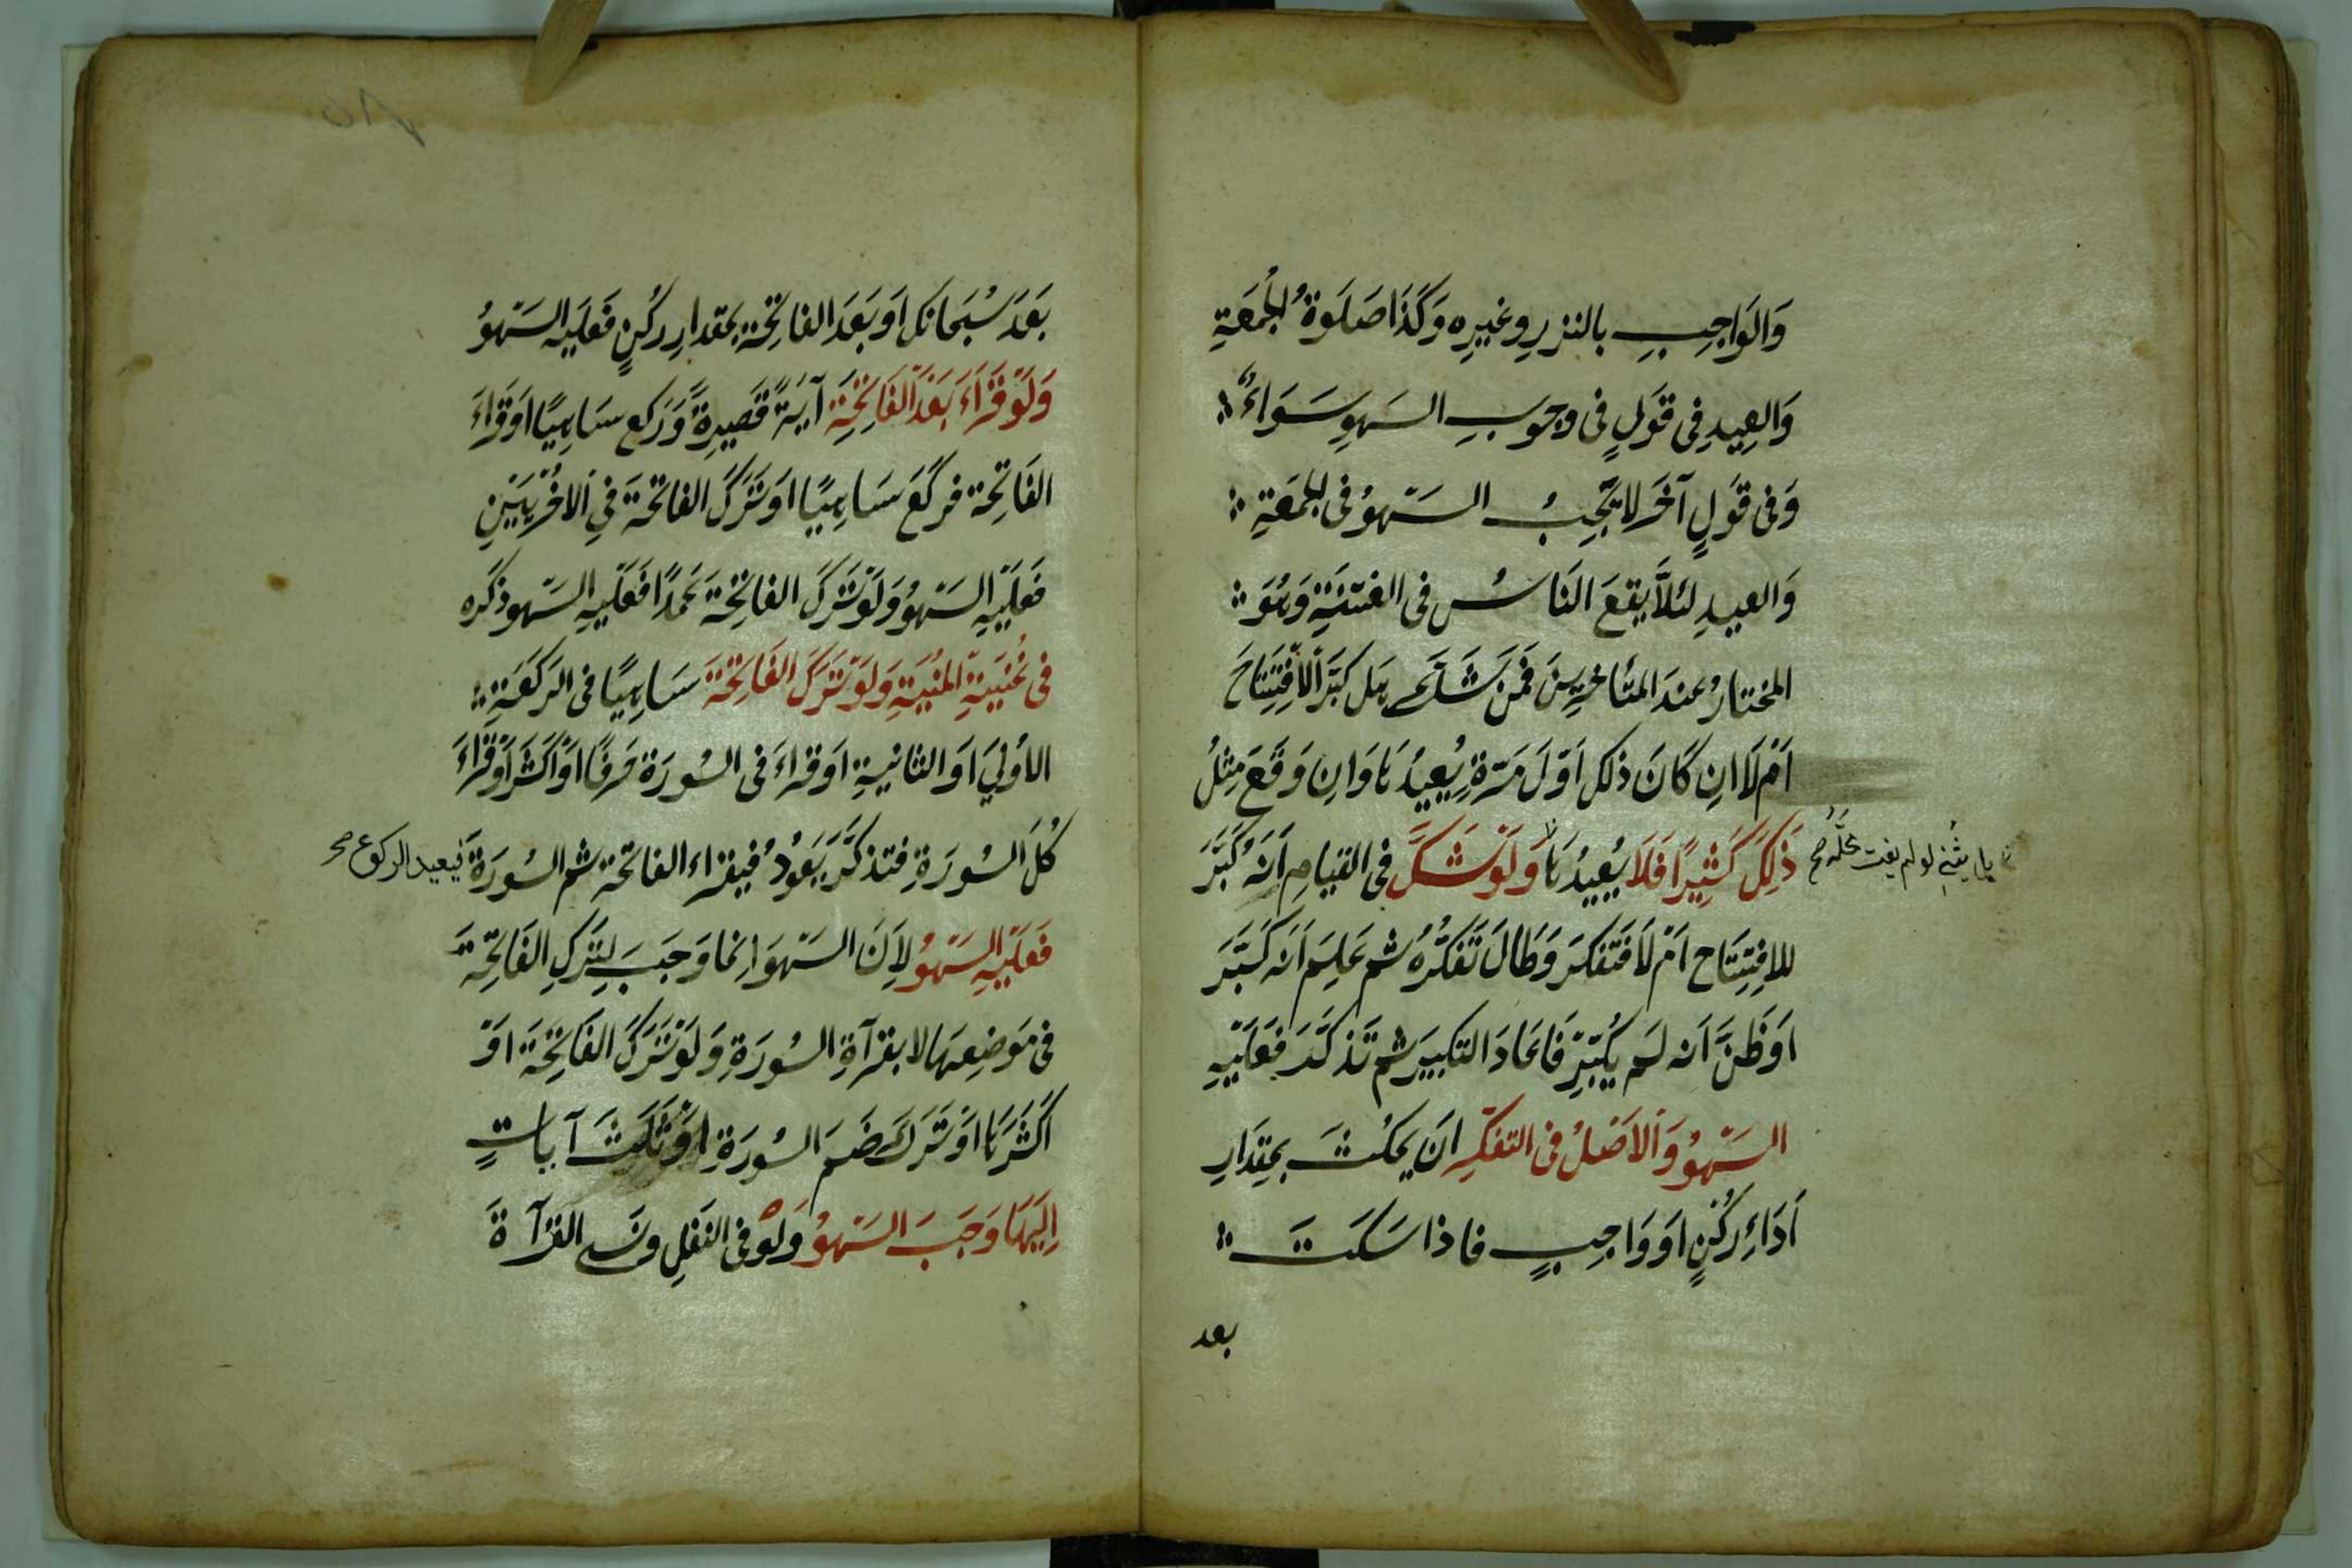 وَالوَاجِبِ بالنذرِ وغيرِه وَكَذَا صَلَوةُ الجُمعَةِ
وَالعِيدِ فِى قَولٍ فى وجوبِ السَهوِ سَوَاءٌ
وَفى قَولٍ آخَر لا يَجِبُ السَهوُ فى الجُمعَةِ
وَالعيدِ لئلاَّ يقعَ النَاسُ فى الفتنَةِ وَهُوَ
المختارُ عندَ المتَأخرِينَ فَمَن شَكَّ هل كبَّرَ الاِفتِتَاحَ
اَمْ لَا ان كَانَ ذلك اَوّلَ مَرّةٍ يُعِيدُهَا وَانِ وَقَعَ مِثلُ
ذَلِكَ كَثِيرًا فَلَا يُعِيدُهَا وَلَوْ شَكَّ فى القيامِ اَنَّهُ كَبَّرَ
لو لم يفت محلّه صح
للاِفتِتَاح اَمْ لَا فَتَفكَّرَ وَطَالَ تَفَكُّرُهُ ثم عَلِمَ اَنَه كَبَّرَ
اَوظَنَّ اَنه لَم يُكَبِّرْ فَاعَادَ التكبيرَ ثم تَذكَّرَ فَعَلَيْهِ
السَّهوُ وَالاَصْلُ فى التفكّرِ ان يمكُثَ بمِقدَارِ
اَدَاءِ رُكْنٍ اَو وَاجِبٍ فاذا سَكَتَ
بعد
٨٥
بَعدَ سُبحَانَك اَو بَعَدَ الفاتِحَة بمقدارِ ركُنٍ فعَلَيهِ السَّهوُ
وَلَوْ قَرَأَ بَعْدَ الفَاتِحَةِ آيَةً قَصِيرةً وَرَكع سَاهِيًا اَوقَرَاءَ
الفَاتِحَة فركَعَ سَاهِيًا اَو تَرَكَ الفاتحَةَ فِى الاُخْرَيَيْنِ
فعَلَيْهِ السَّهوُ وَلَوْ تَرَكَ الفاتحَةَ عَمدًا فَعَلَيْهِ السَّهو ذكَره
فى غُنيَةِ المُنيَةِ وَلَوْ تَرَكَ الفَاتِحَةَ سَاهِيًا فى الرَكعَةِ
الاُولىَ اَو الثانيةِ اَوقراءَ فى السُورَة حَرفًا اَوْ اَكثَرَ اَوقَرَاءَ
كُلَ السُورَةِ فتذكَّرَ يَعَوُدُ فيقراء الفاتحَة ثم السُورَةَ
فيعيد الركوع صح
فَعَلَيْهِ السَّهوُ لاِنَ السَّهوَ اِنما وَجَبَ لِتَركِ الفَاتحَةِ
فى مَوضِعِهَا لا بقرآةِ السُورَةِ وَلَوْ تَرَكَ الفَاتِحَةَ اَوْ
اَكْثَرهَا اَو تَرَكَ ضَمَ السُورَة اَوْ ثَلَثَ آيَاتٍ
اِلَيْهَا وَجَبَ السَّهوُ وَلَوْ فى النَفلِ ونَسى القرآةَ